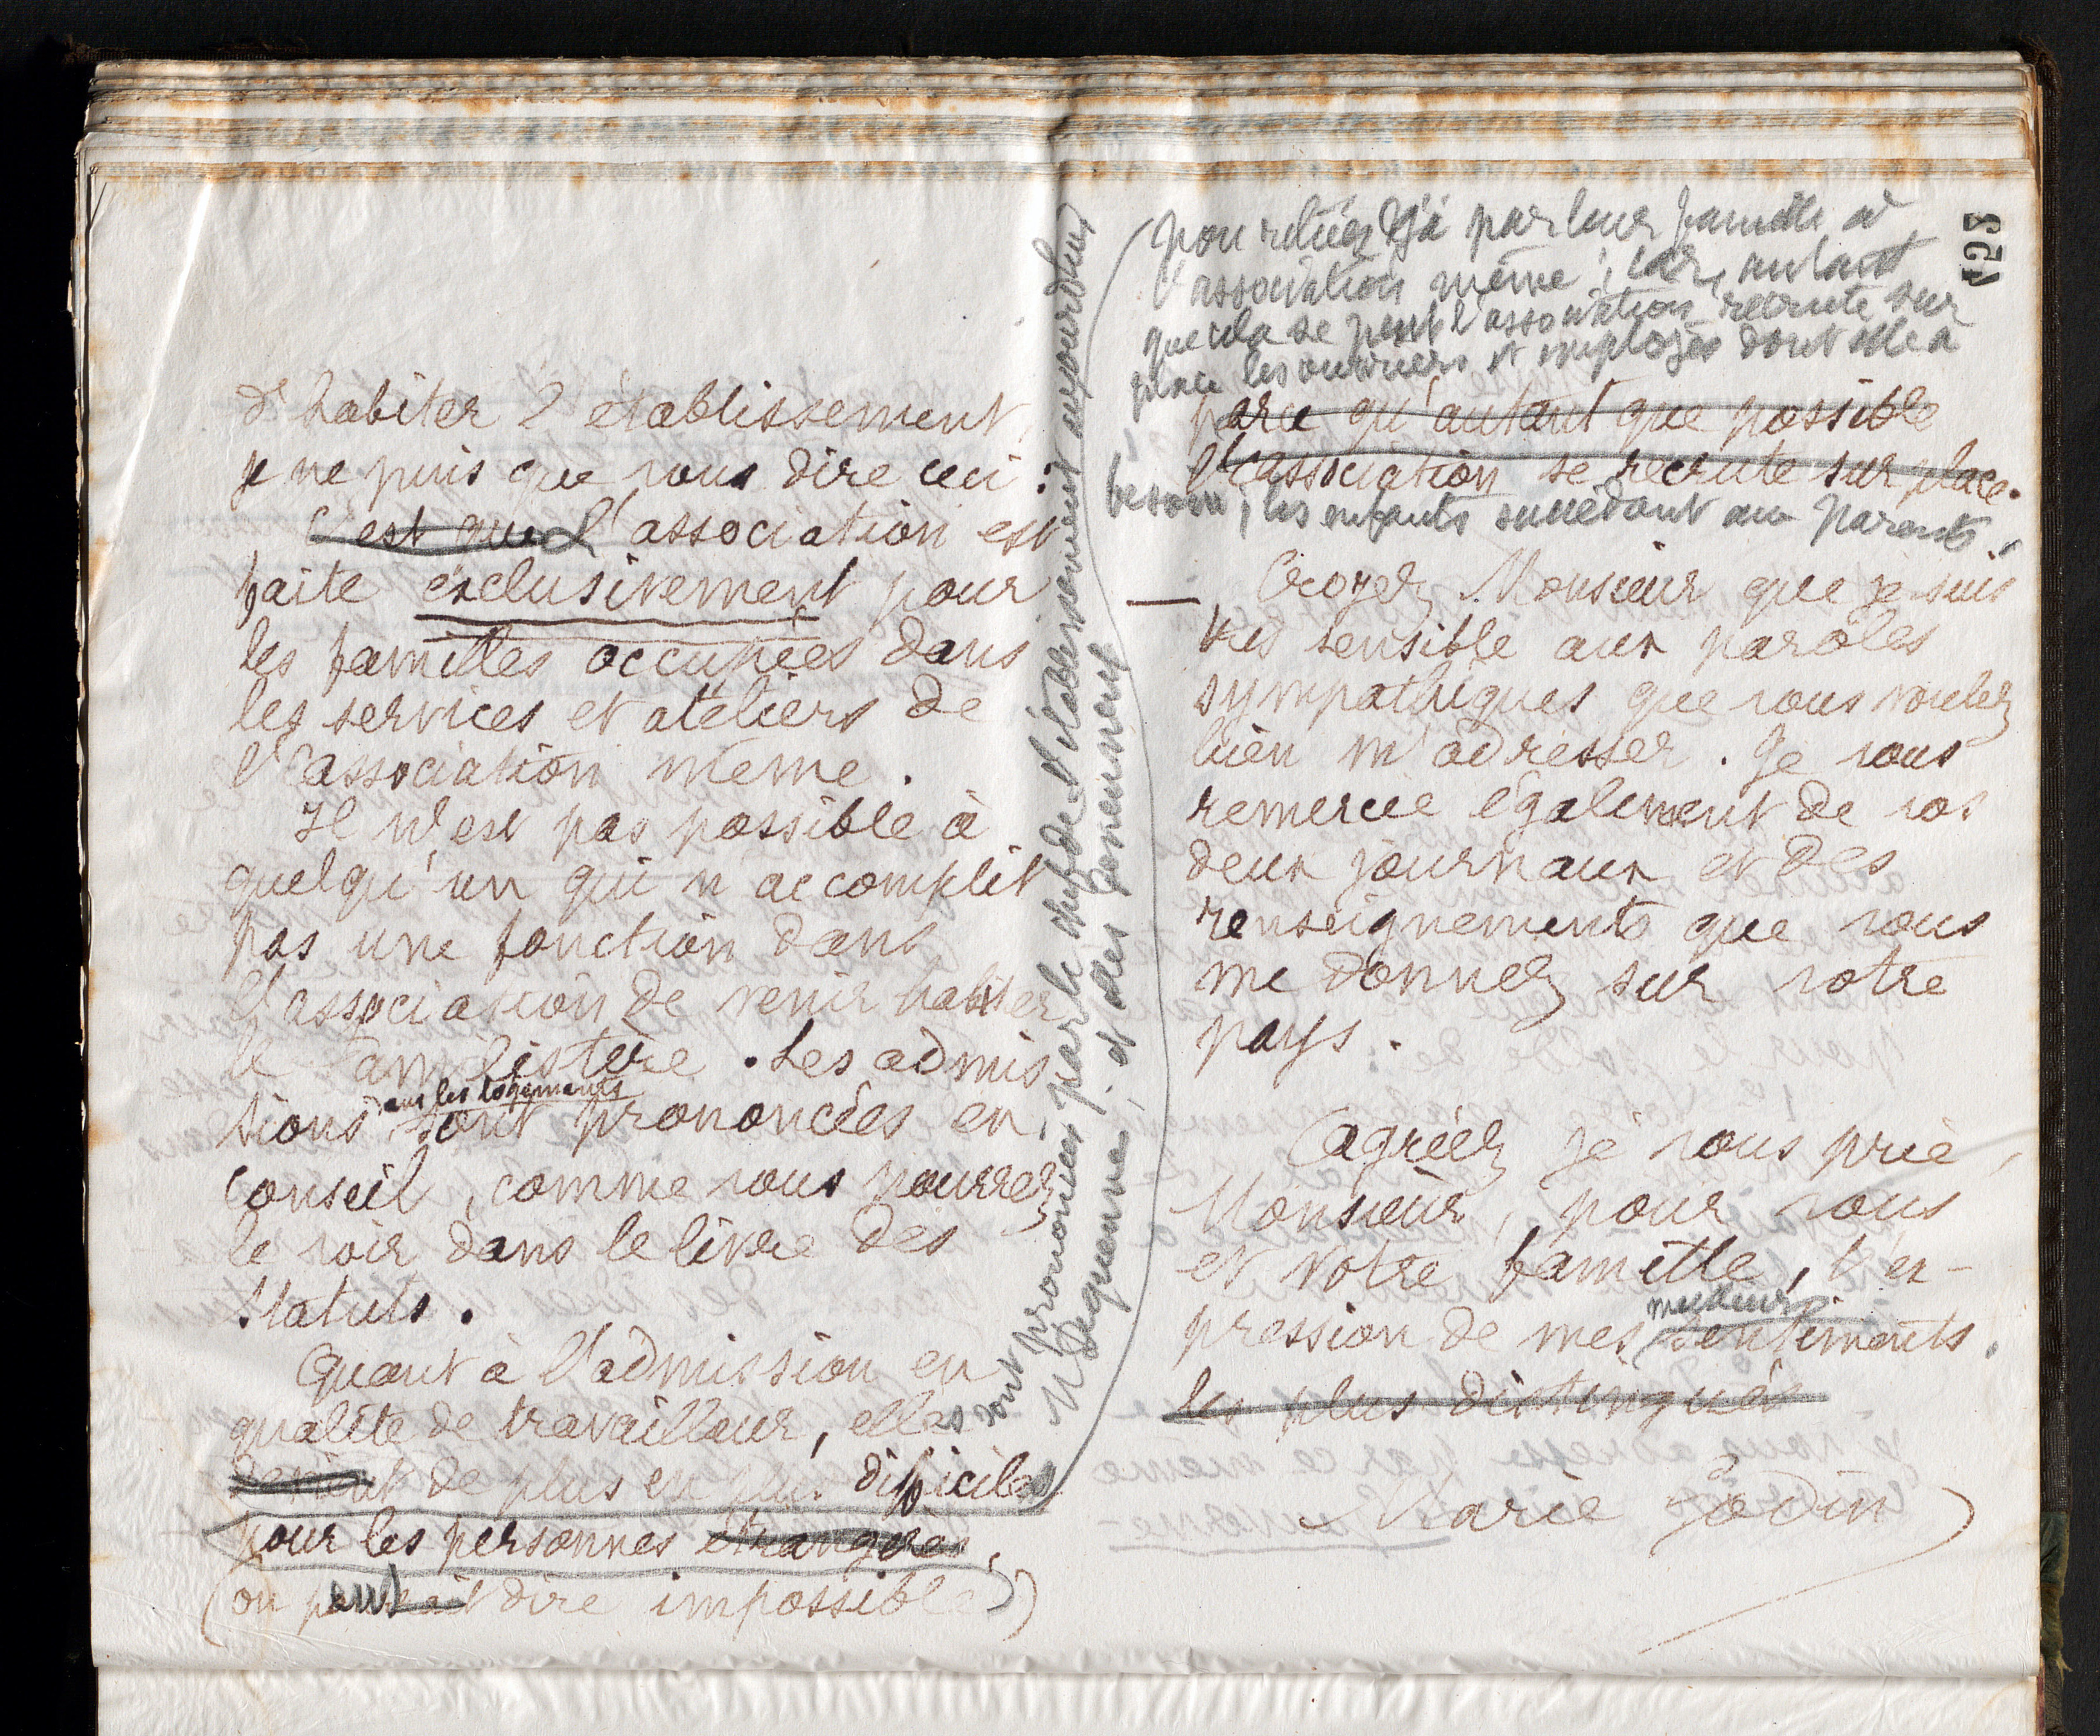 d'habiter l'établissement,
je ne puis que vous dire ceci :
C'est que L'association est
faite exclusivement pour
les familles occupées dans
les services et ateliers de
l'association même.
Il n'est pas possible à
quelqu'un qui n'accomplit
pas une fonction dans
l'association de venir habiter
le Familistère. Les admis
sions aux les logements sont prononcées en
conseil, comme vous pourrez
le voir dans le livre des
Statuts.
Quant à l'admission en
qualité de travailleur, elles sont
prononcées par le chef de l'établissement aujourd'hui
M Dequenne, et elles deviennent
devient de plus en plus difficiles
pour les personnes étrangères,
(on peut dire impossible))
128
non reliées déjà par leur famille à
l'association même ; car, autant
que cela se peut l'association recrute sur
place les ouvriers et employés dont elle a
parce qu'autant que possible
l'association se recrute sur place.
besoin, les enfants succédant aux parents.
Croyez, Monsieur que je suis
très sensible aux paroles
sympathiques que vous voulez
bien m'adresser. Je vous
remercie également de vos
deux journaux et des
renseignements que vous
me donnez sur votre
pays.
Agréez je vous prie,
Monsieur, pour vous
et votre famille, l'ex-
pression de mes meilleurs sentiments.
les plus distingués
Marie Godin